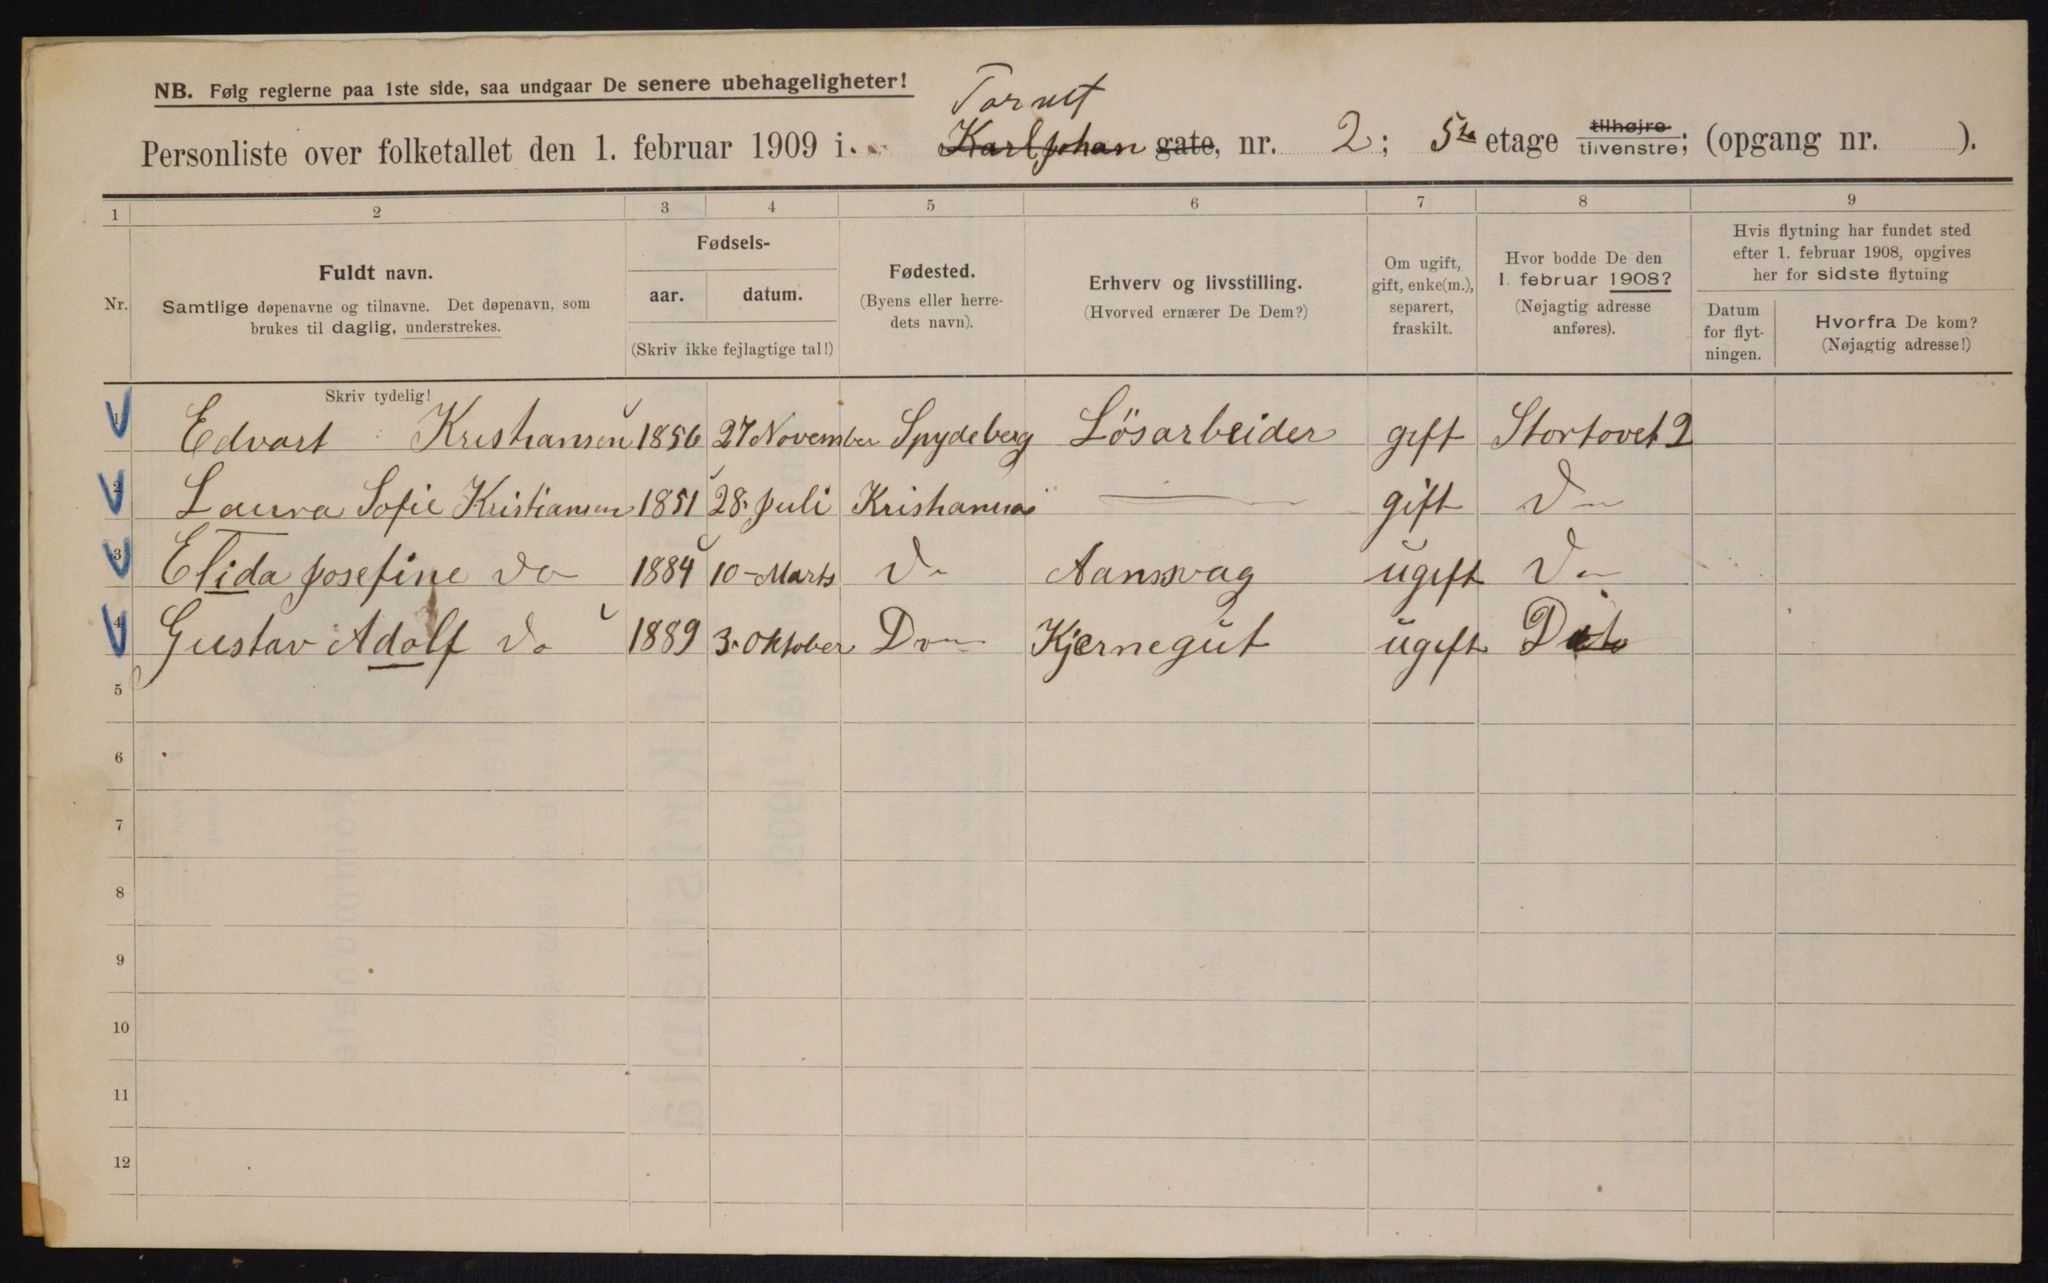 NB. Følg reglerne paa 1ste side, saa undgaar De senere ubehageligheter!
Torvet
Personliste over folketallet den 1. februar 1909 i Karl Johan gate, nr. 2; 5te etage tilhøjre tilvenstre; (opgang nr. ).
1 2 3 4 5 6 7 8 9
Nr.
Fuldt navn.
Samtlige døpenavne og tilnavne. Det døpenavn, som
brukes til daglig, understrekes.
Fødsels-
aar. datum.
(Skriv ikke fejlagtige tal!)
Fødested.
(Byens eller herre-
dets navn).
Erhverv og livsstilling.
(Hvorved ernærer De Dem?)
Om ugift,
gift, enke(m.),
separert,
fraskilt.
Hvor bodde De den
1. februar 1908?
(Nøjagtig adresse
anføres).
Hvis flytning har fundet sted
efter 1. februar 1908, opgives
her for sidste flytning
Datum
for flyt-
ningen.
Hvorfra De kom?
(Nøjagtig adresse!)
Skriv tydelig!
1 Edvart Kristiansen 1856 27 November Spydeberg Lösarbeider gift Stortovet 2
2 Laura Sofie Kristiansen 1851 28. Juli Kristiania gift Do
3 Elida Josefine Do 1884 10 Marts Do ugift Do
4 Gustav Adolf Do 1889 3. Oktober Do Kjernegut ugift Dito
5
6
7
8
9
10
11
12